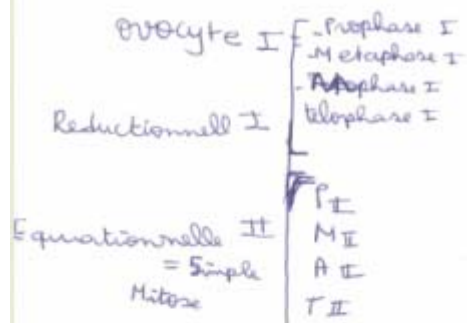 ovocyte I
- Prophase I
- Metaphase I
- Anaphase I
telophase I
Reductionnell I
Equationnelle II
= Simple
Mitose
P II
M II
A II
T II